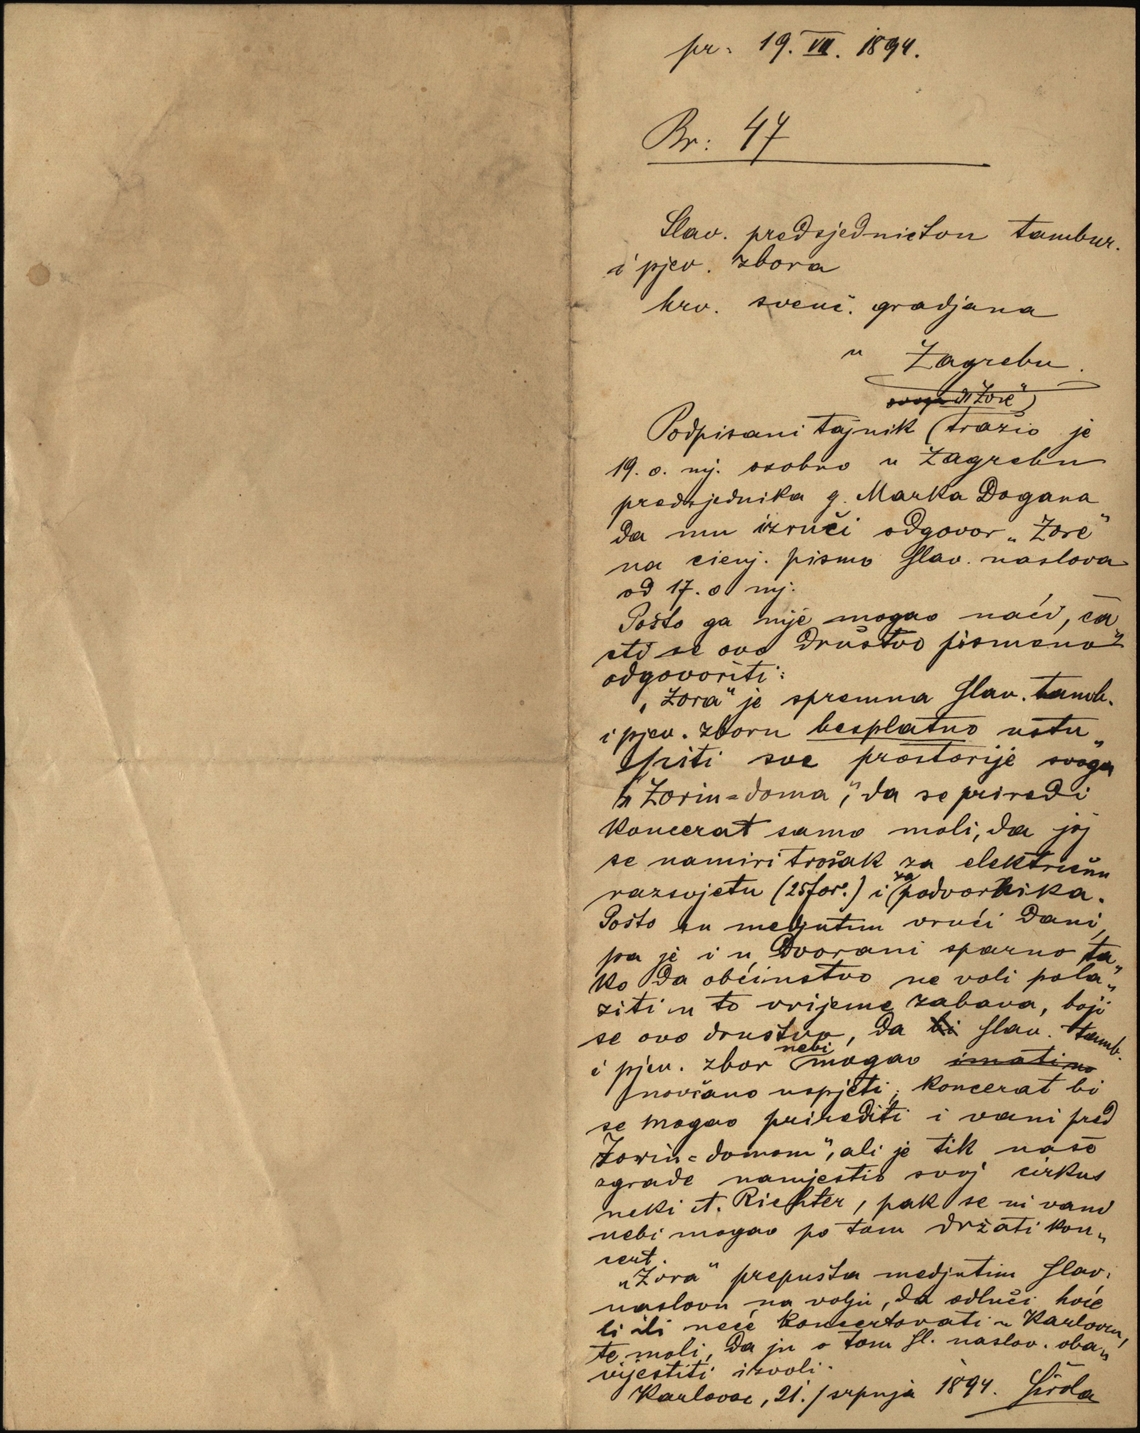 pr. 19. VII. 1894.
Br: 47
Slav. predsjedničtvu tambur.
i pjev. zbora
hrv. sveuč. gradjana
u Zagrebu.
"Zore"
Podpisani tajnik (tražio je
19. o. mj. osobno u Zagrebu
predsjednika g. Marka Dogana
da mu izruči odgovor „Zore"
na cienj. pismo slav. naslova
od 17. o mj.
Pošto ga nije mogao naći, ča„
sti se ovo društvo pismeno
odgovoriti:
„Zora" je spremna slav. tamb.
i pjev. zboru besplatno ustu„
piti sve prostorije svoga
„Zorin=doma", da se priredi
koncerat samo moli, da joj
se namiri trošak za električnu
razsvjetu (25 for.) i za podvornika.
Pošto su medjutim vrući dani,
pa je i u dvorani sparno ta„
ko da občinstvo ne voli pola„
ziti u to vrijeme zabava, boji
se ovo društvo, da bi slav. tamb.
i pjev. zbor nebi mogao imati
novčano uspjeti; koncerat bi
se mogao prirediti i vani pred
„Zorin=domom", ali je tik naše
zgrade namjestio svoj cirkus
neki A. Richter, pak se ni vani
nebi mogao po tom držati kon„
cert.
„Zora" prepušta medjutim slav.
naslovu na volju, da odluči hoće
li ili neće koncertovati u Karlovcu,
te moli, da ju o tom sl. naslov. oba„
vijestiti izvoli.
Karlovac, 21. srpnja 1894.